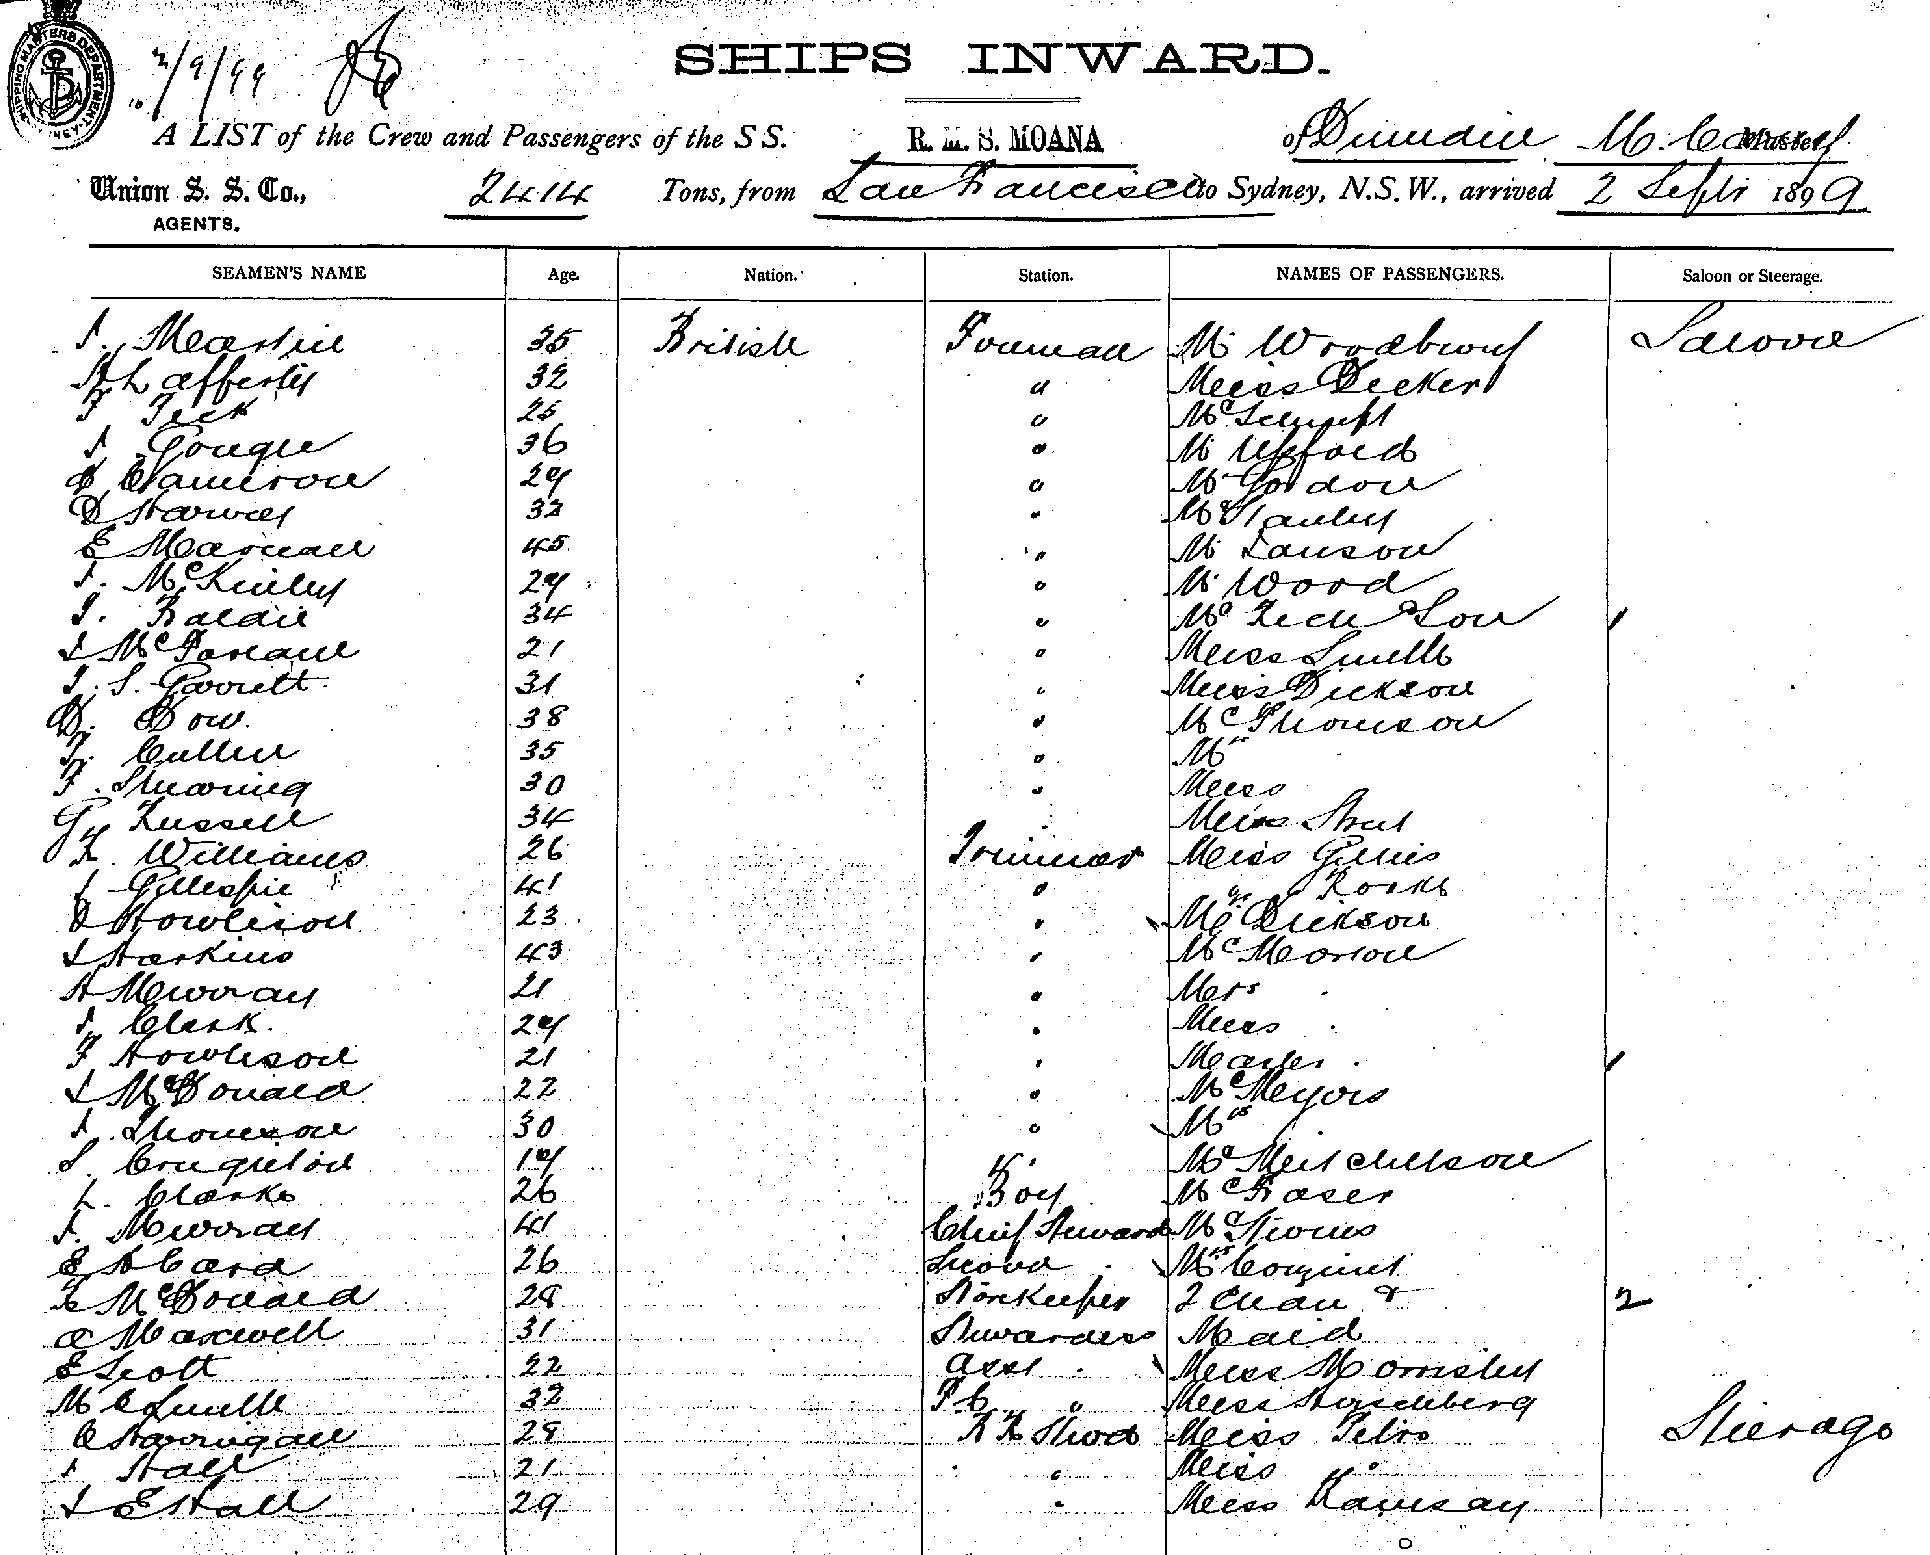 SHIPPING MASTERS DEPARTMENT SYDNEY
2/9/99
SHIPS INWARD.
A LIST of the Crew and Passengers of the S S. R. M. S. MOANA of Dunedin M. Carey Master
Union S. S. Co., AGENTS. 2414 Tons, from San Francisco to Sydney, N.S.W., arrived 2 Septr 1899
SEAMEN'S NAME Age. Nation. Station. NAMES OF PASSENGERS. Saloon or Steerage.
J. Martin 35 British Fireman Mr Woodbury Saloon
H Lafferty 32 " Miss Decker
F Teck 25 " Mr
J. Gouge 36 " Mr Ufford
D Cameron 29 " Mr Gordon
D Harvey 32 " Mr Stanley
E Marnan 45 " Mr Lanson
J. McKinley 29 " Mr Wood
J. Baldie 34 " Mr & Son
J McFarlane 21 " Miss Smith
J. S. Garrett 31 " Miss Dickson
D. Dow. 38 " Mr Thomson
J. Cullen 35 " Mrs
F. Shearing 30 " Miss
G Russell 34 Miss Street
H. Williams 26 Trimmer Miss Gillies
J Gillespie 41 " " Rooke
D Howieson 23 " Mr Dickson
J Harkins 43 " Mr Morton
H Murray 21 " Mrs "
J Clark. 29 " Miss "
F Howieson 21 " Master "
J McDonald 22 " Mr Meyers
J. Thomson 30 " Mrs
S. Congreton 19 " Mr Mitchelson
L. Clarke 26 Boy Mr Fraser
J. Murray 41 Chief Steward Mr Stevens
E H Card 26 Second " Mrs
L McDonald 28 Storekeeper 2 &
A Maxwell 31 Stewardess Maid
E Scott 22 Asst " Miss Morrisby
M C Smith 32 F C " Miss Hirschberg
C Harrigan 28 Stwd Miss Steerage
J Hall 21 " Miss "
J E Hall 29 " Miss Ramsay